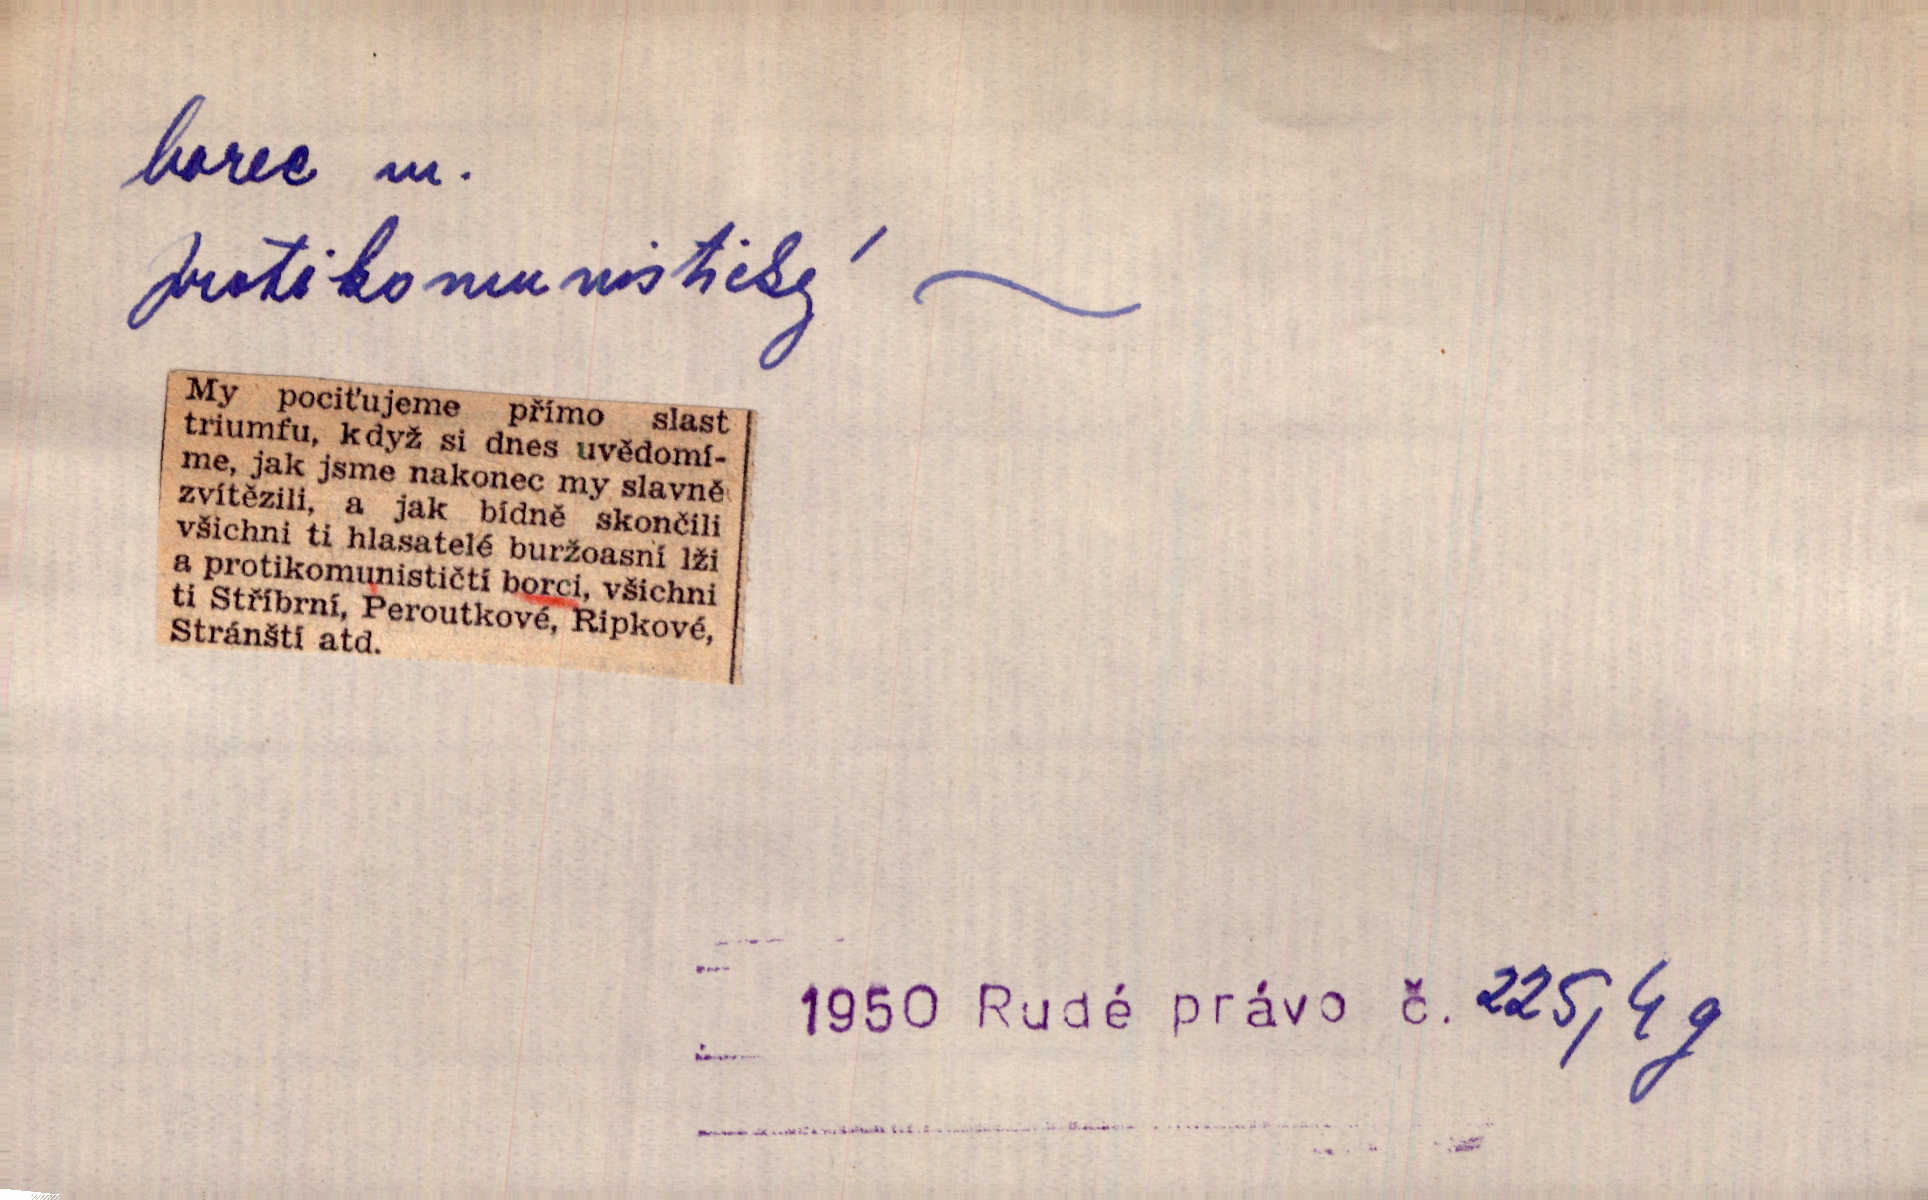 borec m.
protikomunistický ~
My pociťujeme přímo slast
triumfu, když si dnes uvědomí-
me, jak jsme nakonec my slavně
zvítězili, a jak bídně skončili
všichni ti hlasatelé buržoasní lži
a protikomunističtí borci, všichni
ti Stříbrní, Peroutkové, Ripkové,
Stránští atd.
1950 Rudé právo č. 225, 4 g